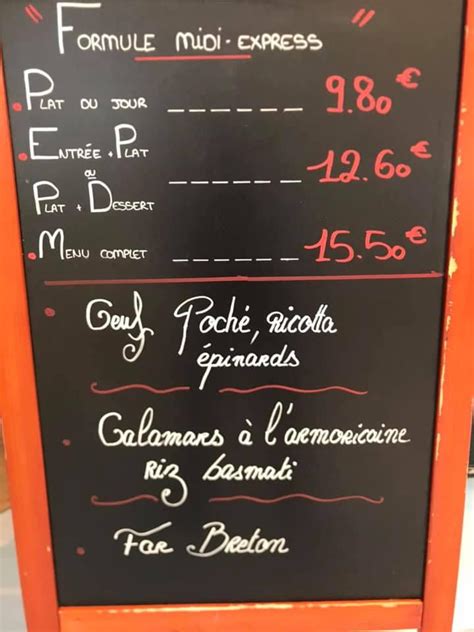 " Formule midi-express "
• Plat du jour ______ 9.80€
• Entrée + Plat
ou ______ 12.60€
Plat + Dessert
• Menu complet ______ 15.50€
• Oeuf Poché, ricotta
épinards
• Calamars à l'armoricaine
riz basmati
• Far Breton